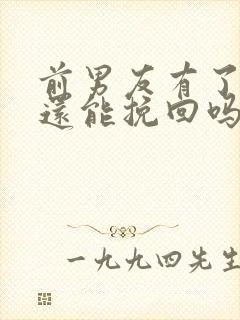 前男友有了
还能挽回吗
一九九四先生